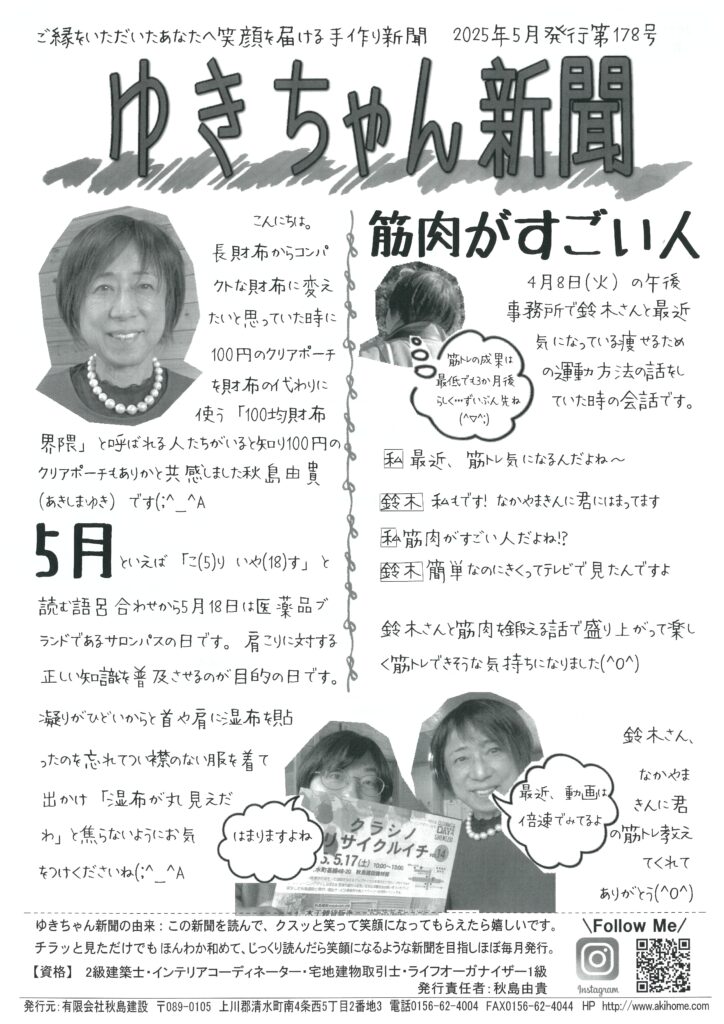 ご縁をいただいたあなたへ笑顔を届ける手作り新聞 2025年5月発行第178号
ゆきちゃん新聞
こんにちは。
長財布からコンパ
クトな財布に変え
たいと思っていた時に
100円のクリアポーチ
を財布の代わりに
使う「100均財布
界隈」と呼ばれる人たちがいると知り100円の
クリアポーチもありかと共感しました秋島由貴
(あきしまゆき) です(;^_^A
5月といえば「こ(5)り いや(18)す」と
読む語呂合わせから5月18日は医薬品ブ
ランドであるサロンパスの日です。肩こりに対する
正しい知識を普及させるのが目的の日です。
凝りがひどいからと首や肩に湿布を貼
ったのを忘れてつい襟のない服を着て
出かけ「湿布が丸見えだ
わ」と焦らないようにお気
をつけくださいね(;^_^A
筋肉がすごい人
4月8日(火) の午後
事務所で鈴木さんと最近
気になっている痩せるため
の運動方法の話をし
ていた時の会話です。
筋トレの成果は
最低でも3か月後
らしく…ずいぶん先ね
(^▽^;)
私 最近、筋トレ気になるんだよね~
鈴木 私もです! なかやまきんに君にはまってます
私 筋肉がすごい人だよね!?
鈴木 簡単なのにきくってテレビで見たんですよ
鈴木さんと筋肉を鍛える話で盛り上がって楽し
く筋トレできそうな気持ちになりました(^O^)
鈴木さん、
なかやま
きんに君
の筋トレ教え
てくれて
ありがとう(^O^)
はまりますよね
最近、動画は
倍速でみてるよ
クラシノ
リサイクルイチ
14
5.17(土) 10:00~15:00
ゆきちゃん新聞の由来:この新聞を読んで、クスッと笑って笑顔になってもらえたら嬉しいです。
チラッと見ただけでもほんわか和めて、じっくり読んだら笑顔になるような新聞を目指しほぼ毎月発行。
【資格】 2級建築士・インテリアコーディネーター・宅地建物取引士・ライフオーガナイザー1級
発行責任者:秋島由貴
\Follow Me/
Instagram
発行元:有限会社秋島建設 〒089-0105 上川郡清水町南4条西5丁目2番地3 電話0156-62-4004 FAX0156-62-4044 HP http://www.akihome.com/